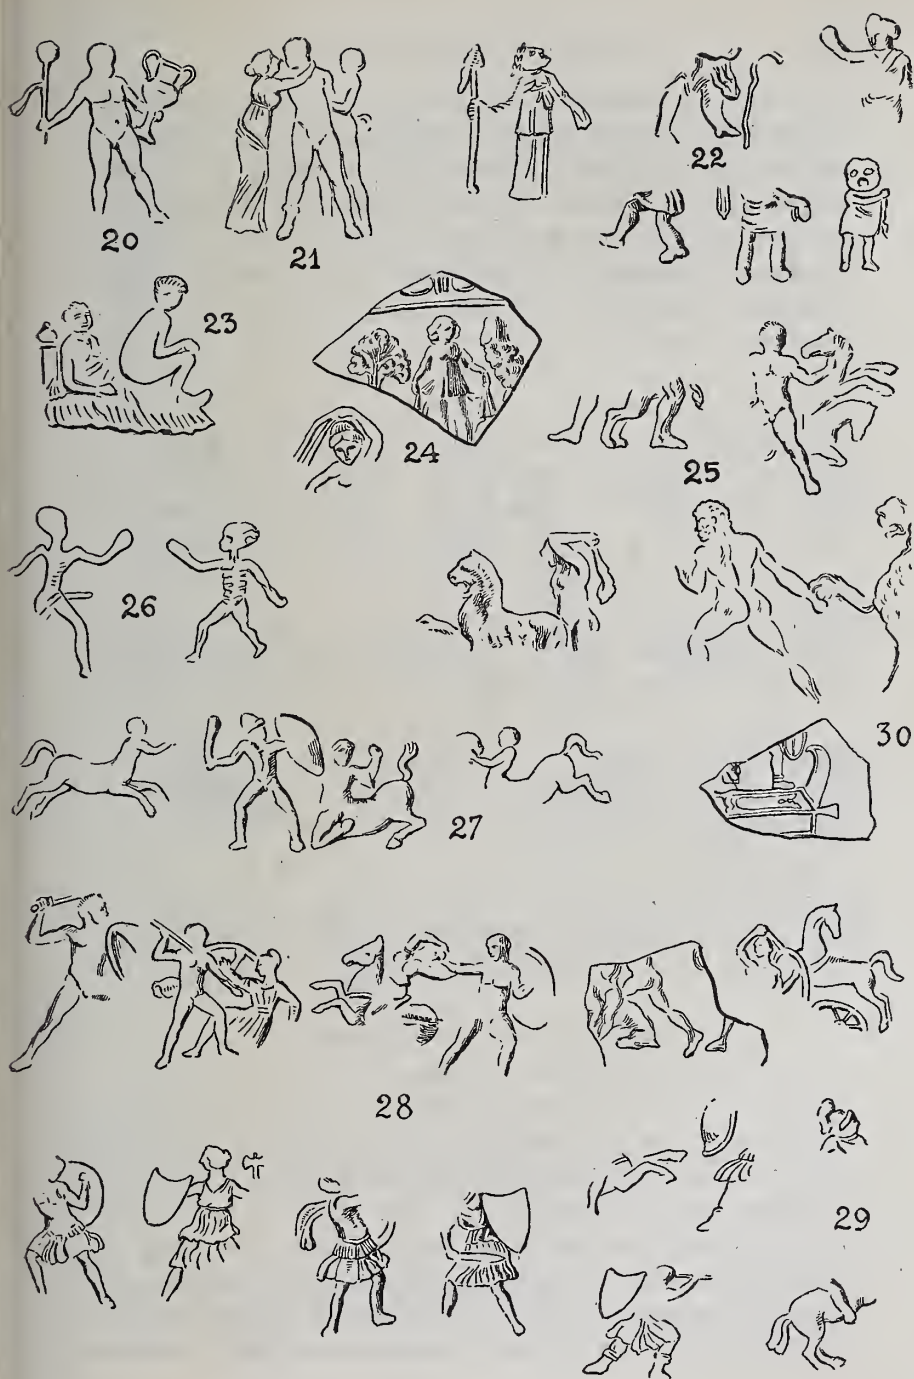 20
21
22
23
24
25
26
27
30
28
29